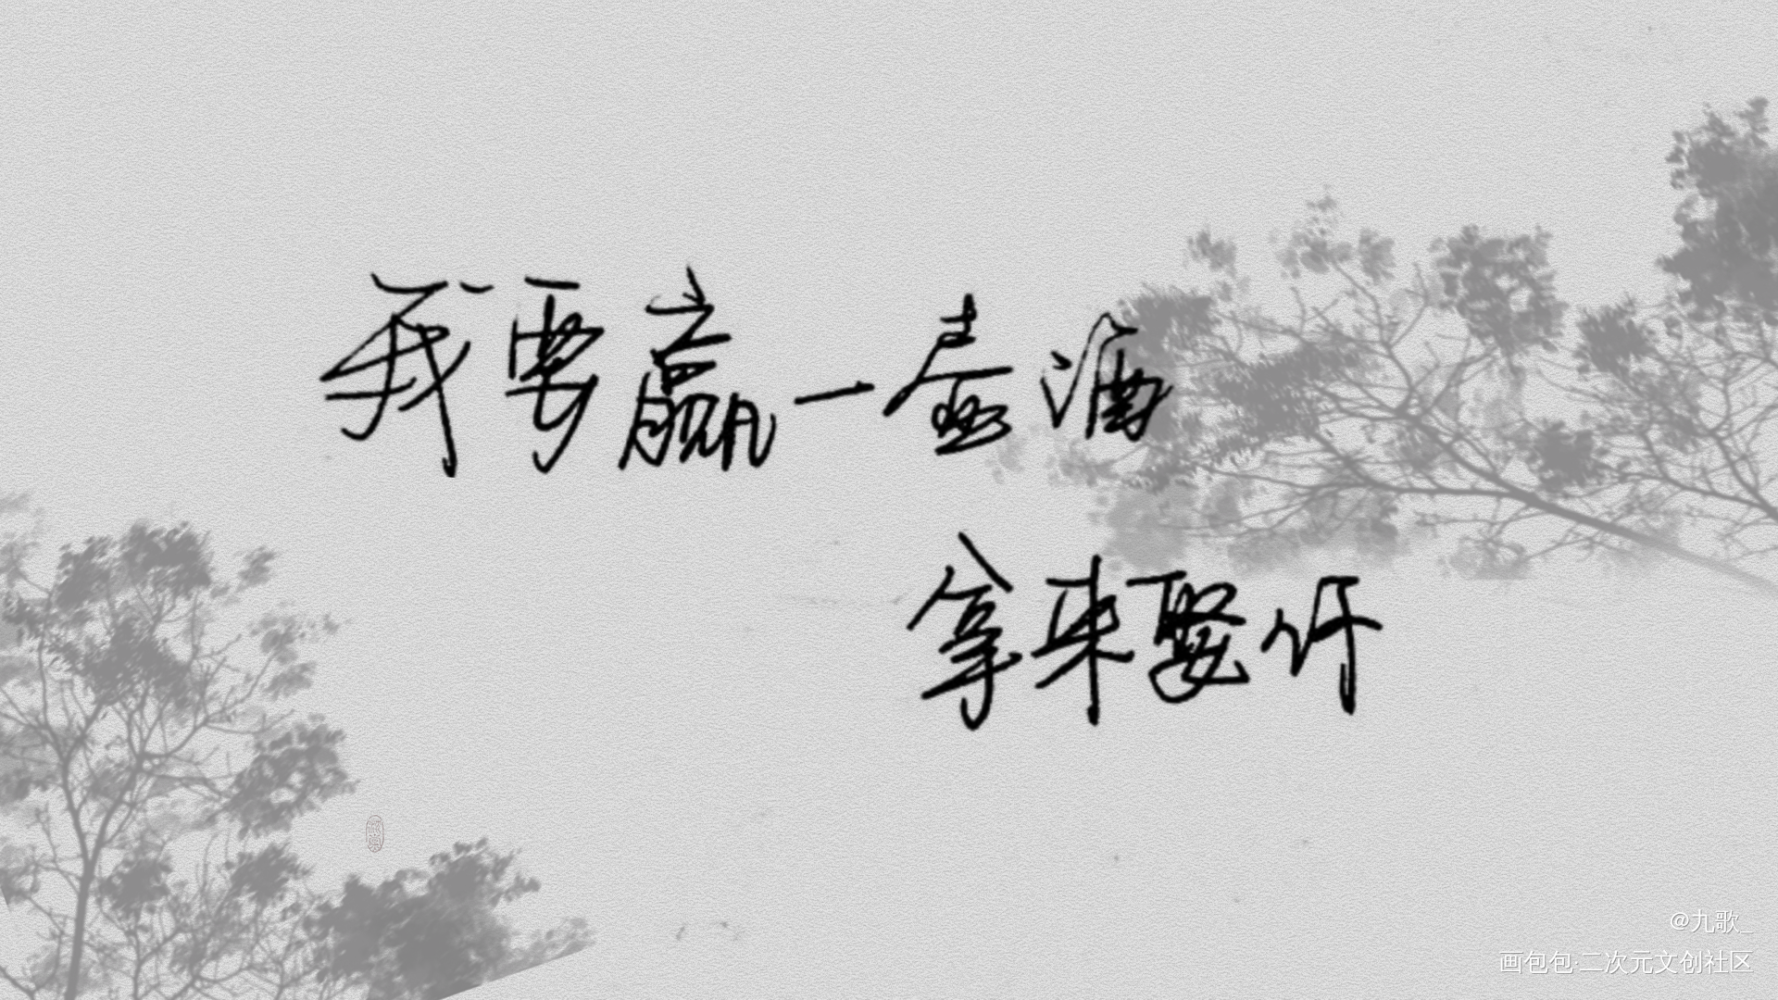 我要赢一壶酒
拿来娶仟
@九歌_
画包包·二次元文创社区